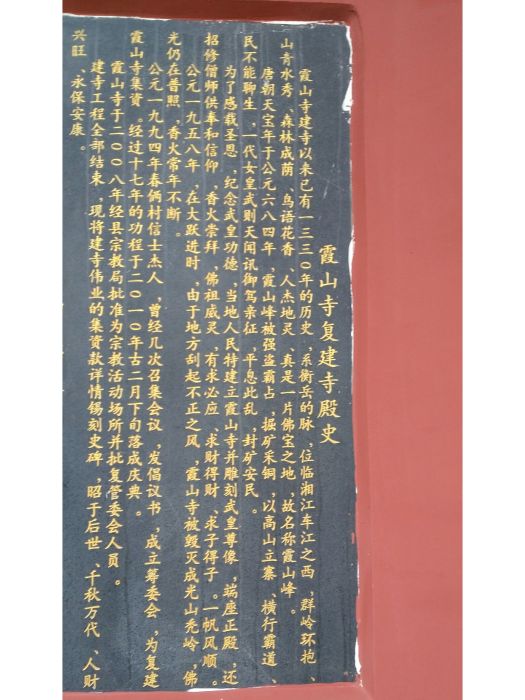 霞山寺复建寺殿史
霞山寺建寺以来已有一三三0年的历史，系衡岳的脉，位临湘江车江之西，群岭环抱、
山青水秀、森林成荫、鸟语花香、人杰地灵、真是一片佛宝之地，故名称霞山峰。
唐朝天宝年于公元六八四年，霞山峰被强盗霸占，掘矿采铜，以高山立寨、横行霸道、
民不能聊生，一代女皇武则天闻讯御驾亲征，平息此乱，封矿安民。
为了感载圣恩，纪念武皇功德，当地人民特建立霞山寺并雕刻武皇尊像，端座正殿，还
招修僧师供奉和信仰，香火崇拜，佛祖威灵，有求必应、求财得财、求子得子。一帆风顺。
公元一九五八年，在大跃进时，由于地方刮起不正之风，霞山寺被毁灭成光山秃岭，佛
光仍在普照，香火常年不断。
公元一九九四年春俩村信士杰人，曾经几次召集会议，发倡议书，成立筹委会，为复建
霞山寺集资。经过十七年的功程于二0一0年古二月下旬落成庆典。
霞山寺于二00八年经县宗教局批准为宗教活动场所并批复管委会人员。
建寺工程全部结束，现将建寺伟业的集资款详情锡刻史碑，昭于后世、千秋万代、人财
兴旺、永保安康。